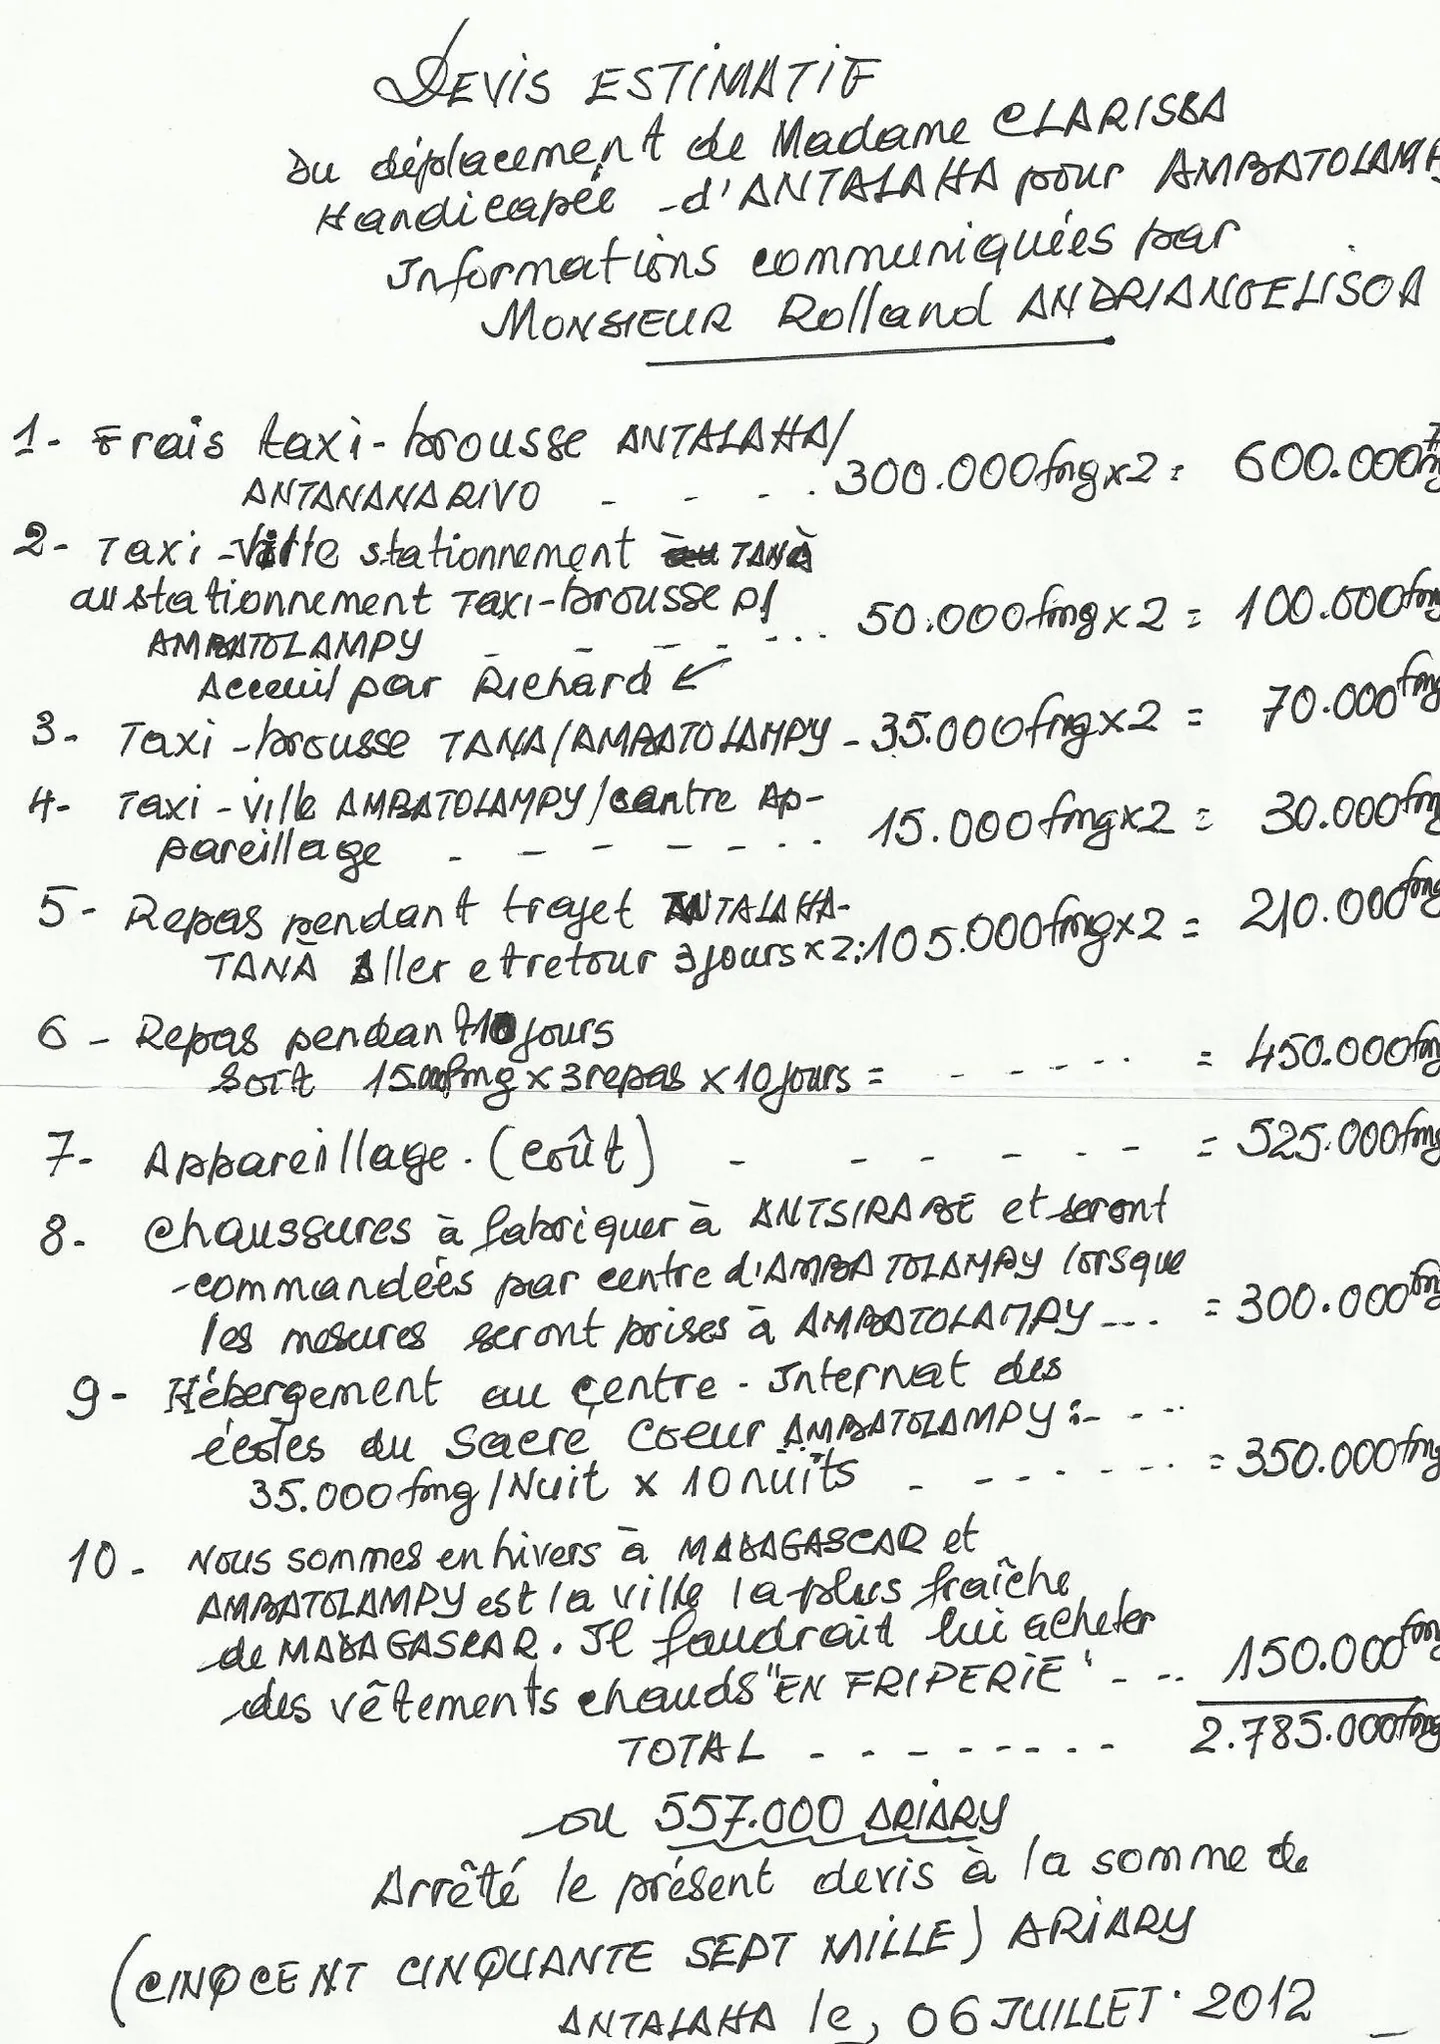 DEVIS ESTIMATIF
Du déplacement de Madame CLARISSA
Handicapée - d'ANTALAHA pour AMBATOLAMPY
Informations communiquées par
MONSIEUR Rolland ANDRIANGELISOA
1- Frais taxi-brousse ANTALAHA/
ANTANANARIVO - - - . 300.000fmg x2 = 600.000fmg
2- Taxi-ville stationnement TANA
au stationnement Taxi-brousse p/
AMBATOLAMPY - - - - ... 50.000fmg x 2 = 100.000fmg
Acceuil par Richard ↙
3- Taxi-brousse TANA/AMBATOLAMPY - 35.000fmg x2 = 70.000fmg
4- Taxi-ville AMBATOLAMPY/centre Ap-
pareillage . - - - - - . . 15.000fmg x2 = 30.000fmg
5- Repas pendant trajet ANTALAHA-
TANA Aller et retour 3 jours x 2: 105.000fmg x2 = 210.000fmg
6- Repas pendant 10 jours
Soit 15.000fmg x 3 repas x 10 jours = - - - - . . = 450.000fmg
7- Appareillage. (coût) - - - - - - - = 525.000fmg
8- Chaussures à fabriquer à ANTSIRABE et seront
commandées par centre d'AMBATOLAMPY lorsque
les mesures seront prises à AMBATOLAMPY --- . = 300.000fmg
9- Hébergement au Centre - Internat des
écoles du Sacré Coeur AMBATOLAMPY :- - - ..
35.000fmg/Nuit x 10 nuits - - - - - - . . = 350.000fmg
10- Nous sommes en hivers à MADAGASCAR et
AMBATOLAMPY est la ville la plus fraîche
de MADAGASCAR. Il faudrait lui acheter
des vêtements chauds "EN FRIPERIE" - - .. 150.000fmg
TOTAL - - - - - - - - - 2.785.000fmg
ou 557.000 ARIARY
Arrêté le présent devis à la somme de
(CINQCENT CINQUANTE SEPT MILLE) ARIARY
ANTALAHA le, 06 JUILLET 2012